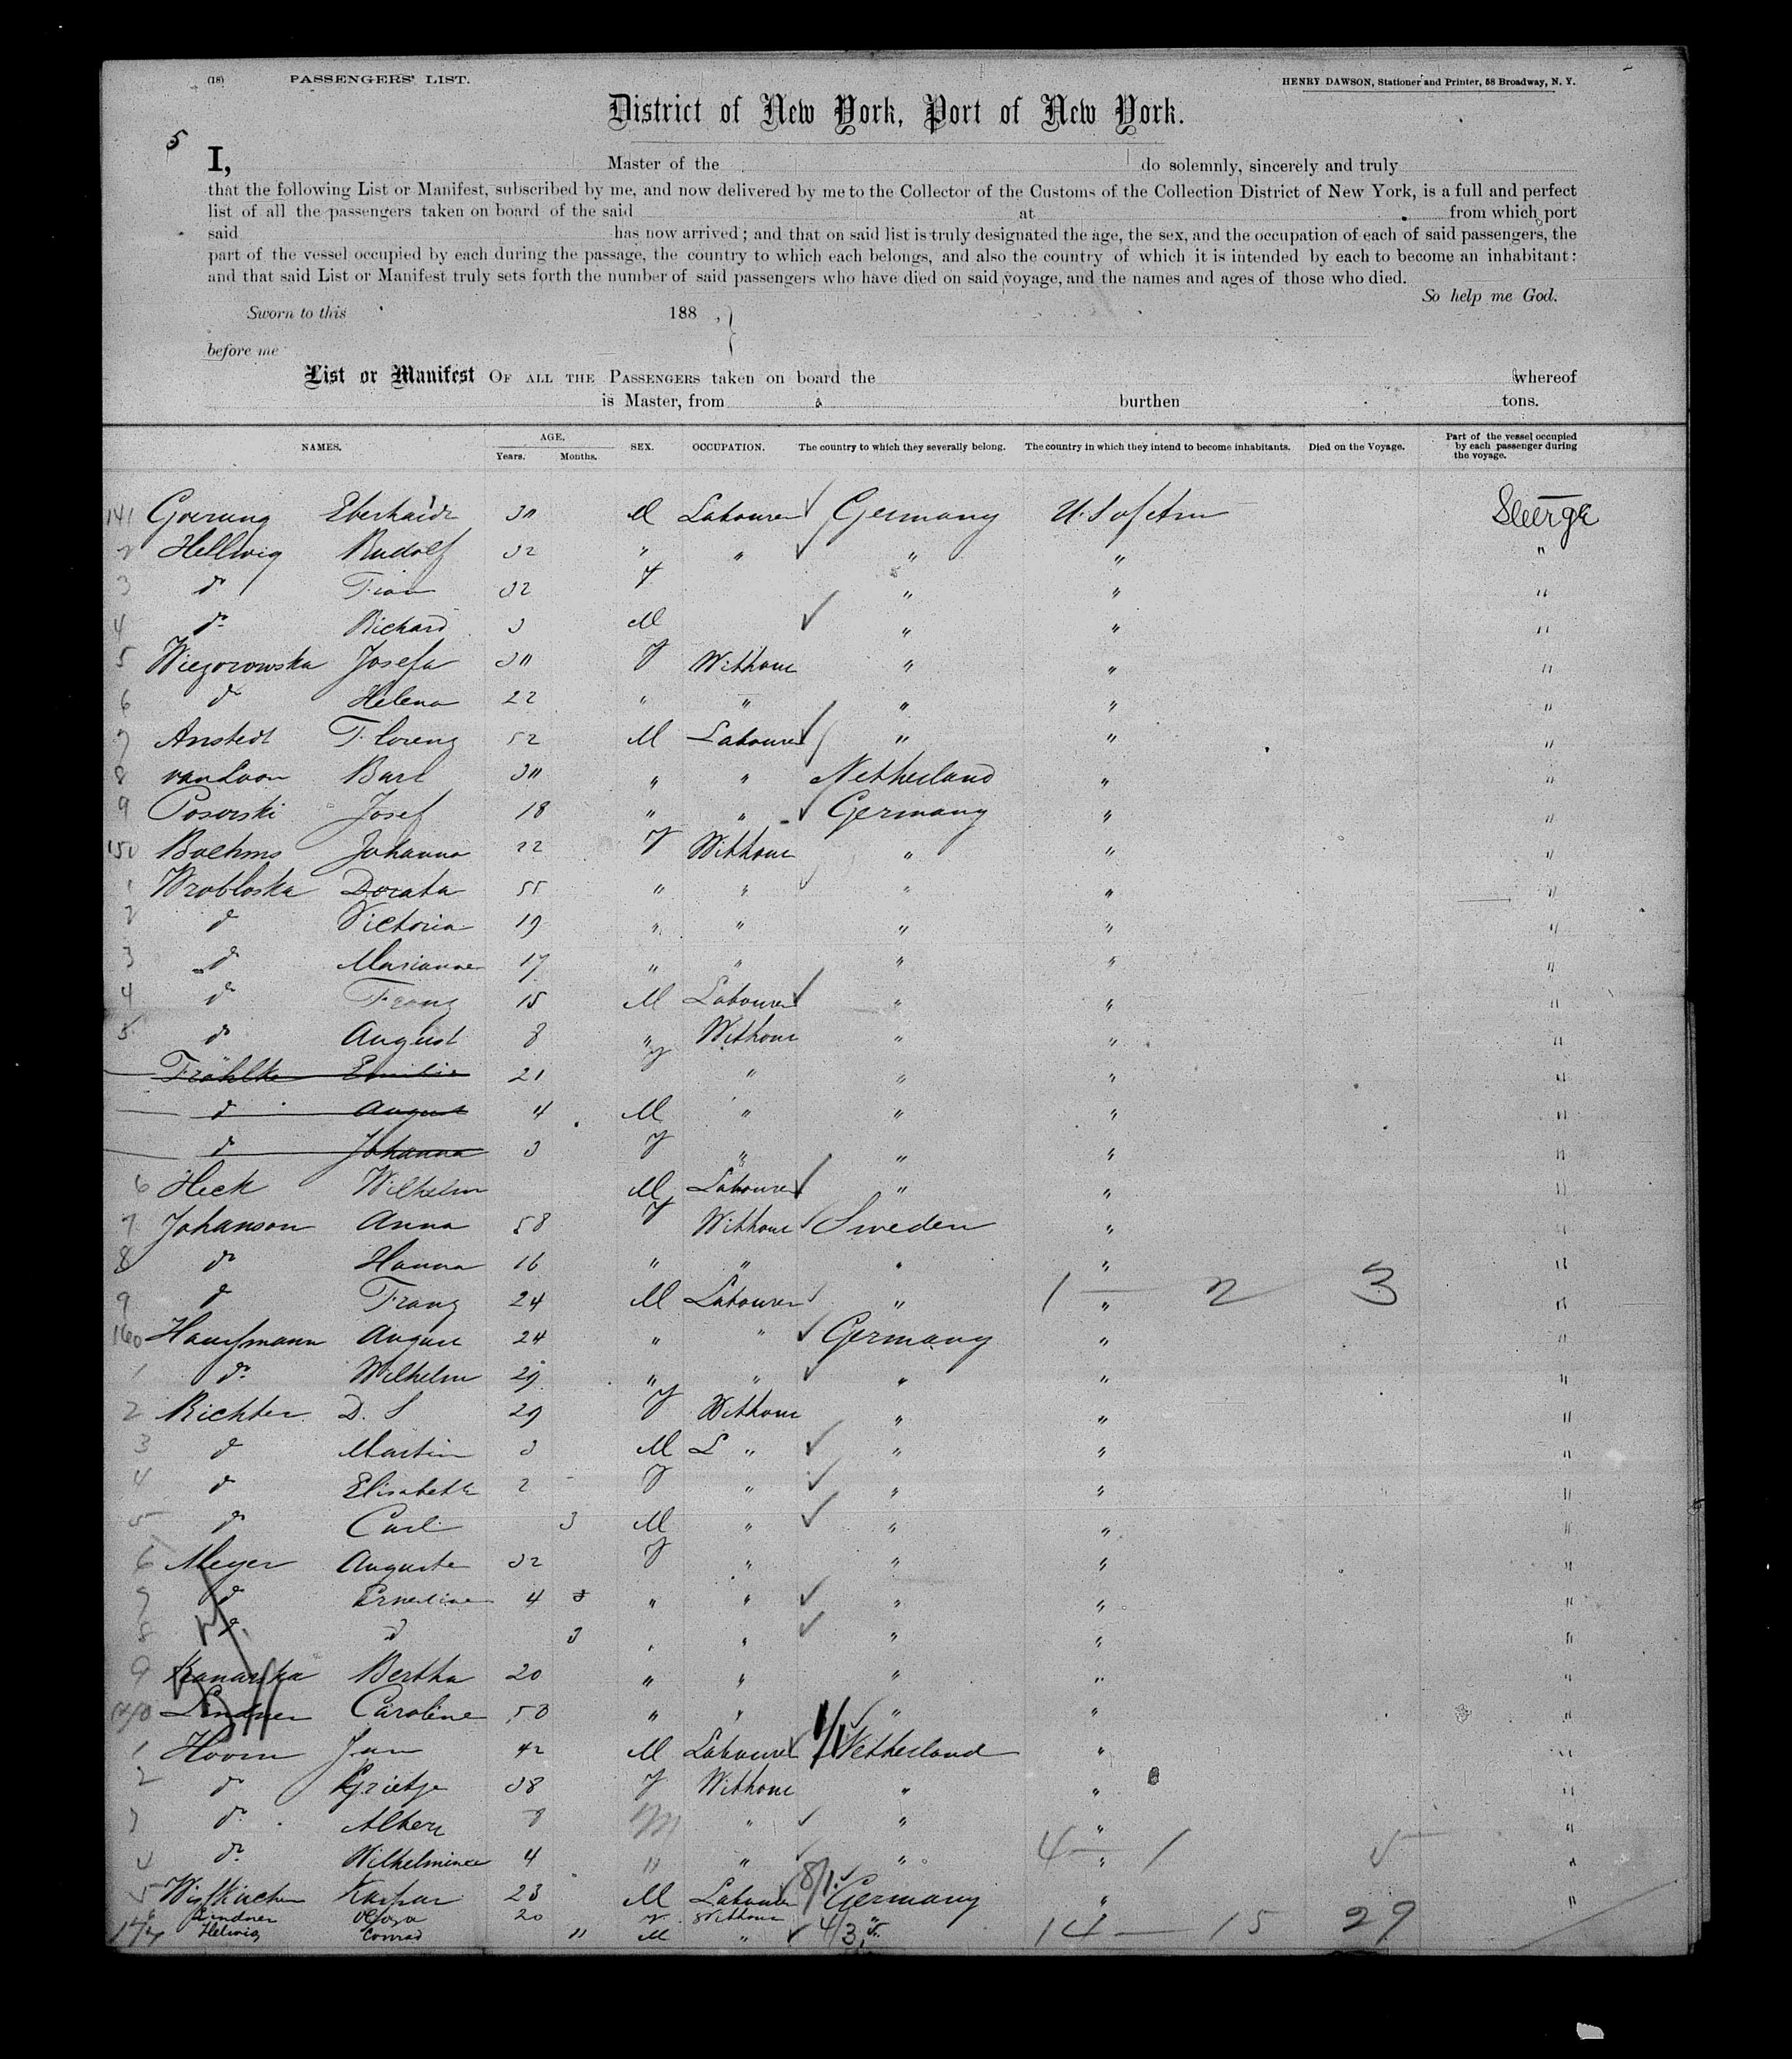 (18) PASSENGERS' LIST. HENRY DAWSON, Stationer and Printer, 58 Broadway, N. Y.
District of New York, Port of New York.
5
I, Master of the do solemnly, sincerely and truly
that the following List or Manifest, subscribed by me, and now delivered by me to the Collector of the Customs of the Collection District of New York, is a full and perfect
list of all the passengers taken on board of the said at from which port
said has now arrived; and that on said list is truly designated the age, the sex, and the occupation of each of said passengers, the
part of the vessel occupied by each during the passage, the country to which each belongs, and also the country of which it is intended by each to become an inhabitant:
and that said List or Manifest truly sets forth the number of said passengers who have died on said voyage, and the names and ages of those who died.
So help me God.
Sworn to this 188 ,
before me
List or Manifest OF ALL THE PASSENGERS taken on board the whereof
is Master, from burthen tons.
NAMES. AGE. Years. Months. SEX. OCCUPATION. The country to which they severally belong. The country in which they intend to become inhabitants. Died on the Voyage. Part of the vessel occupied by each passenger during the voyage.
141 Goerung Eberhardt M Labourer Germany U.S of Am
2 Hellwig Rudolf 32 " " " " "
3 do 32 F " " "
4 do Richard 3 M " " "
5 Wiezorowska Josefa F Without " " "
6 do Helena 22 " " " " "
7 Anstedt Florenz 52 M Labourer " " "
8 van Loon " " Netherland " "
9 Posorski Josef 18 " " Germany " "
150 Boehms Johanna 22 F Without " " "
1 Wrobloska Dorata 55 " " " " "
2 do Victoria 19 " " " " "
3 do Marianna 17 " " " " "
4 do Franz 15 M Labourer " " "
5 do August 8 " Without " " "
Fröhlke Emilie 21 F " " " "
do August 4 M " " " "
do Johanna 3 F " " " "
6 Heck Wilhelm M Labourer " " "
7 Johanson Anna 58 F Without Sweden " "
8 do Hanna 16 " " " " "
9 do Franz 24 M Labourer " " 1 — 2 3 "
160 Haussmann August 24 " " Germany " "
1 do Wilhelm 29 " " " " "
2 Richter D. S 29 F Without " " "
3 do Martin 3 M L " " " "
4 do Elisabeth 2 F " " " "
5 do Carl 3 M " " " "
6 Meyer Auguste 32 F " " " "
7 do Ernestine 4 " " " " "
8 do d 3 " " " " "
9 Kanarska Bertha 20 " " " " "
170 Lindner Caroline 50 " " " " "
1 Hoorn Jan 42 M Labourer Netherland " "
2 do Grietje 38 F Without " " "
3 do Albert 8 M " " " "
4 do Wilhelmina 4 " " " " 4 — 1 5 "
5 Kaspar 23 M Labourer 8/1 Germany " "
6 Lindner 20 Without "
177 Helwig Conrad 11 M " 4/3 14 — 15 29